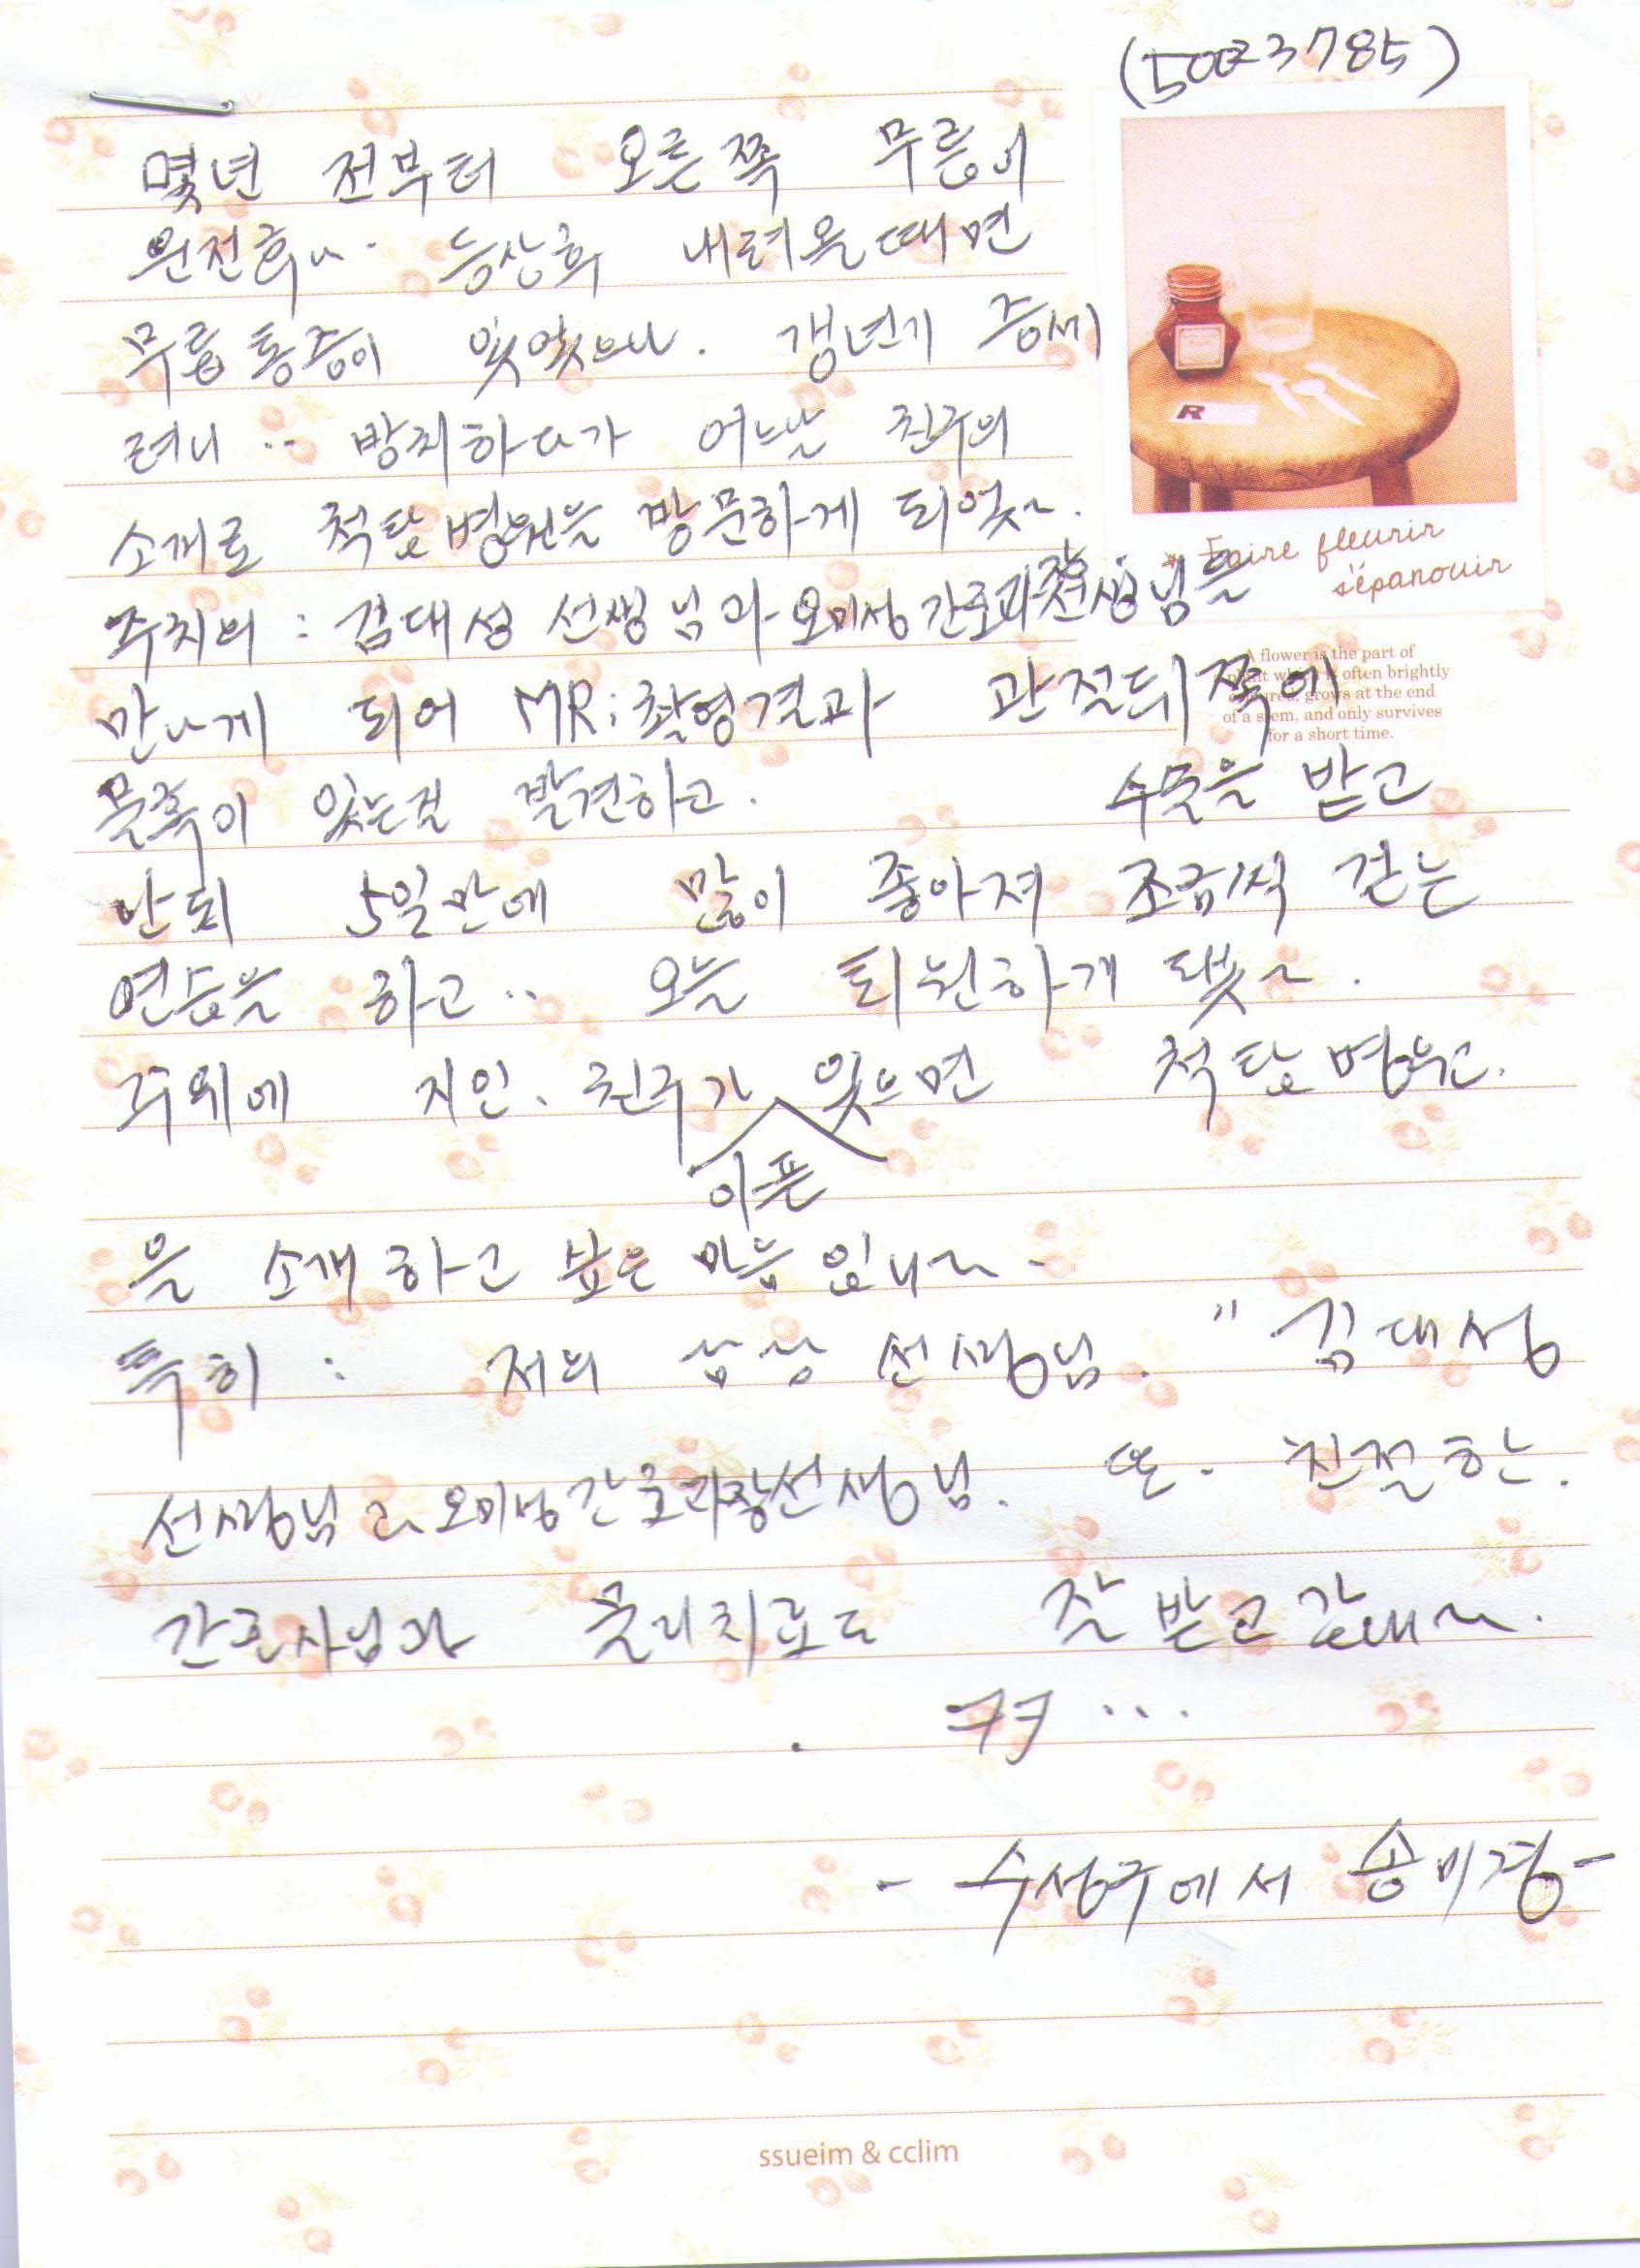 (5003785)
몇년 전부터 오른쪽 무릎이
운전후나.. 등산후 내려올때면
무릎통증이 있었으나. 갱년기 증세
려니.. 방치하다가 어느날 친구의
소개로 척탑병원을 방문하게 되었다.
주치의 : 김대성 선생님과 오미성 간호과장선생님을
만나게 되어 MRi촬영결과 관절뒤쪽에
물혹이 있는걸 발견하고. 수술을 받고
난뒤 5일만에 많이 좋아져 조금씩 걷는
연습을 하고.. 오늘 퇴원하게 됐다.
주위에 지인. 친구가 있으면 척탑병원.
아픈
을 소개하고 싶은 마음입니다.
특히 : 저의 선생님. " 김대성
선생님과 오미성간호과장선생님. 또. 친절한.
간호사님과 물리치료도 잘 받고 갑니다.
ㅋㅋ...
- 수성구에서 송미경 -
Faire fleurir
s'épanouir
A flower is the part of
often brightly
grows at the end
of a stem, and only survives
for a short time.
R
ssueim & cclim